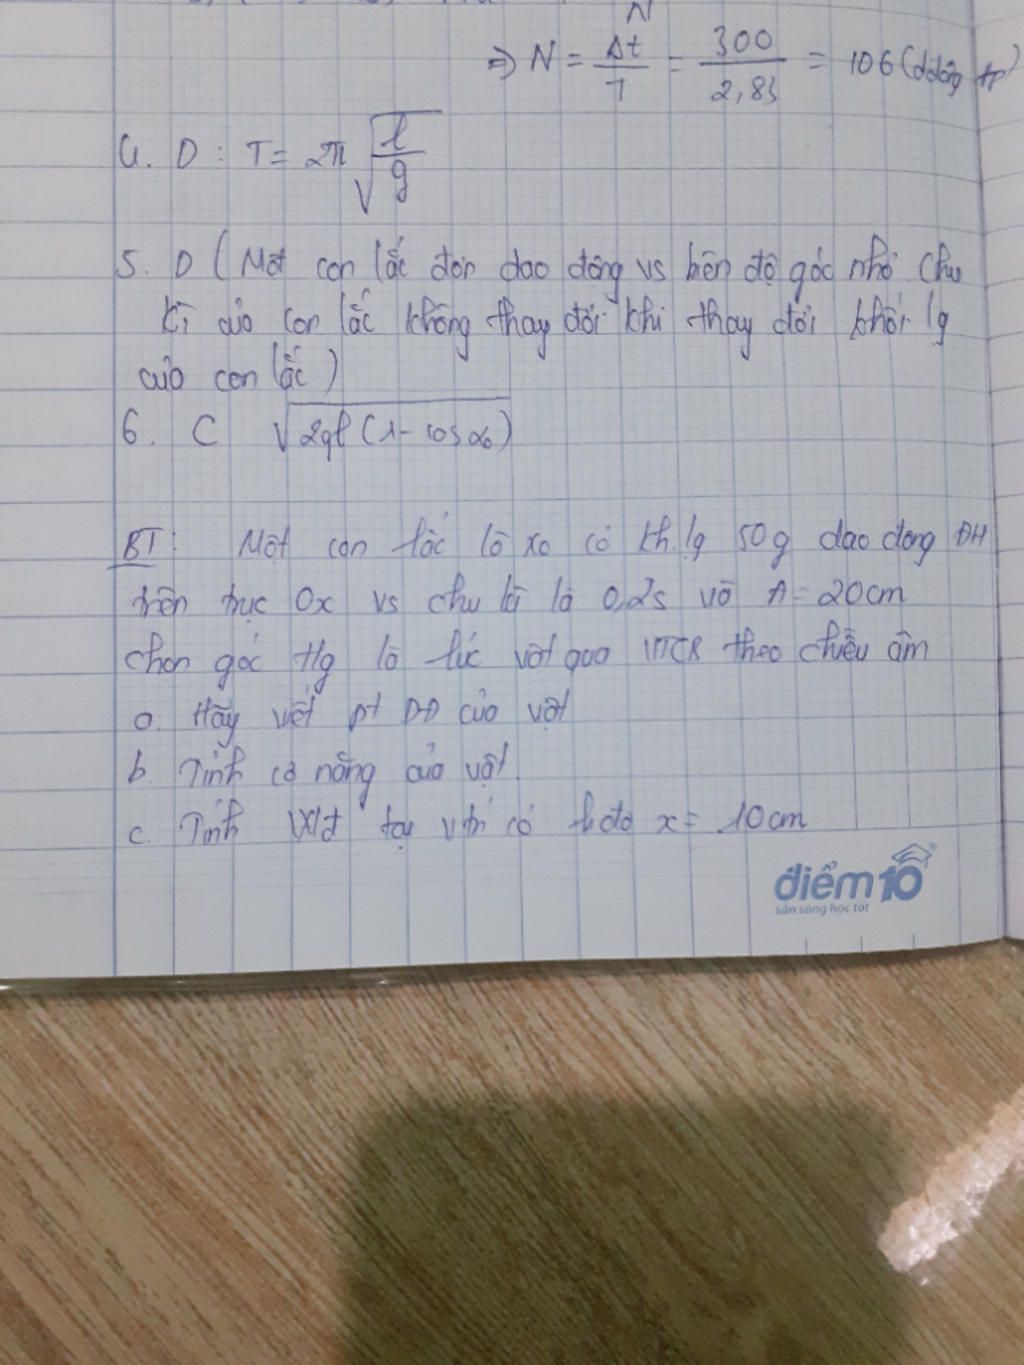 N
⇒ N = Δt/T = 300/2,83 = 106 (ddộng tp)
4. D : T = 2π√(l/g)
5. D (Một con lắc đơn dao động vs biên độ góc nhỏ. Chu
kì của con lắc không thay đổi khi thay đổi khối lg
của con lắc)
6. C √(2gl(1-cosα₀))
BT: Một con lắc lò xo có kh.lg 50g dao động ĐH
trên trục Ox vs chu kì là 0,2s và A = 20cm
chọn gốc tg là lúc vật qua VTCB theo chiều âm
a. Hãy viết pt DĐ của vật
b. Tính cơ năng của vật.
c. Tính Wđ tại vtrí có li độ x = 10cm
điểm10
sẵn sàng học tốt